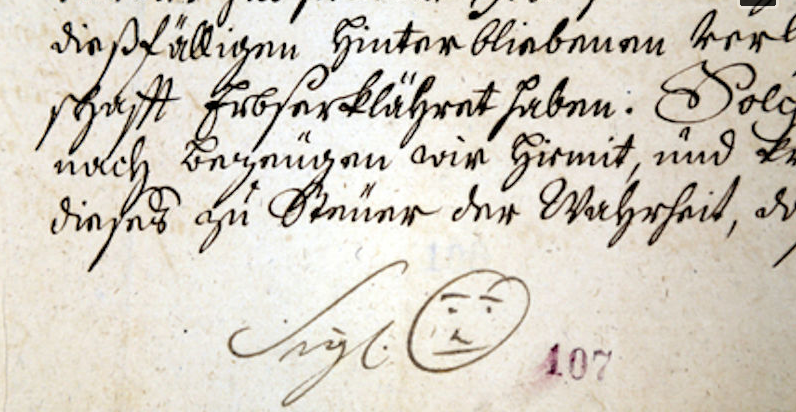 dießfälligen Hinterbliebenen Verl
schafft Erbserklähret haben. Solc
nach bezeugen wir hiermit, und kr
dieses zu Steuer der Wahrheit, da
Sigl.
107